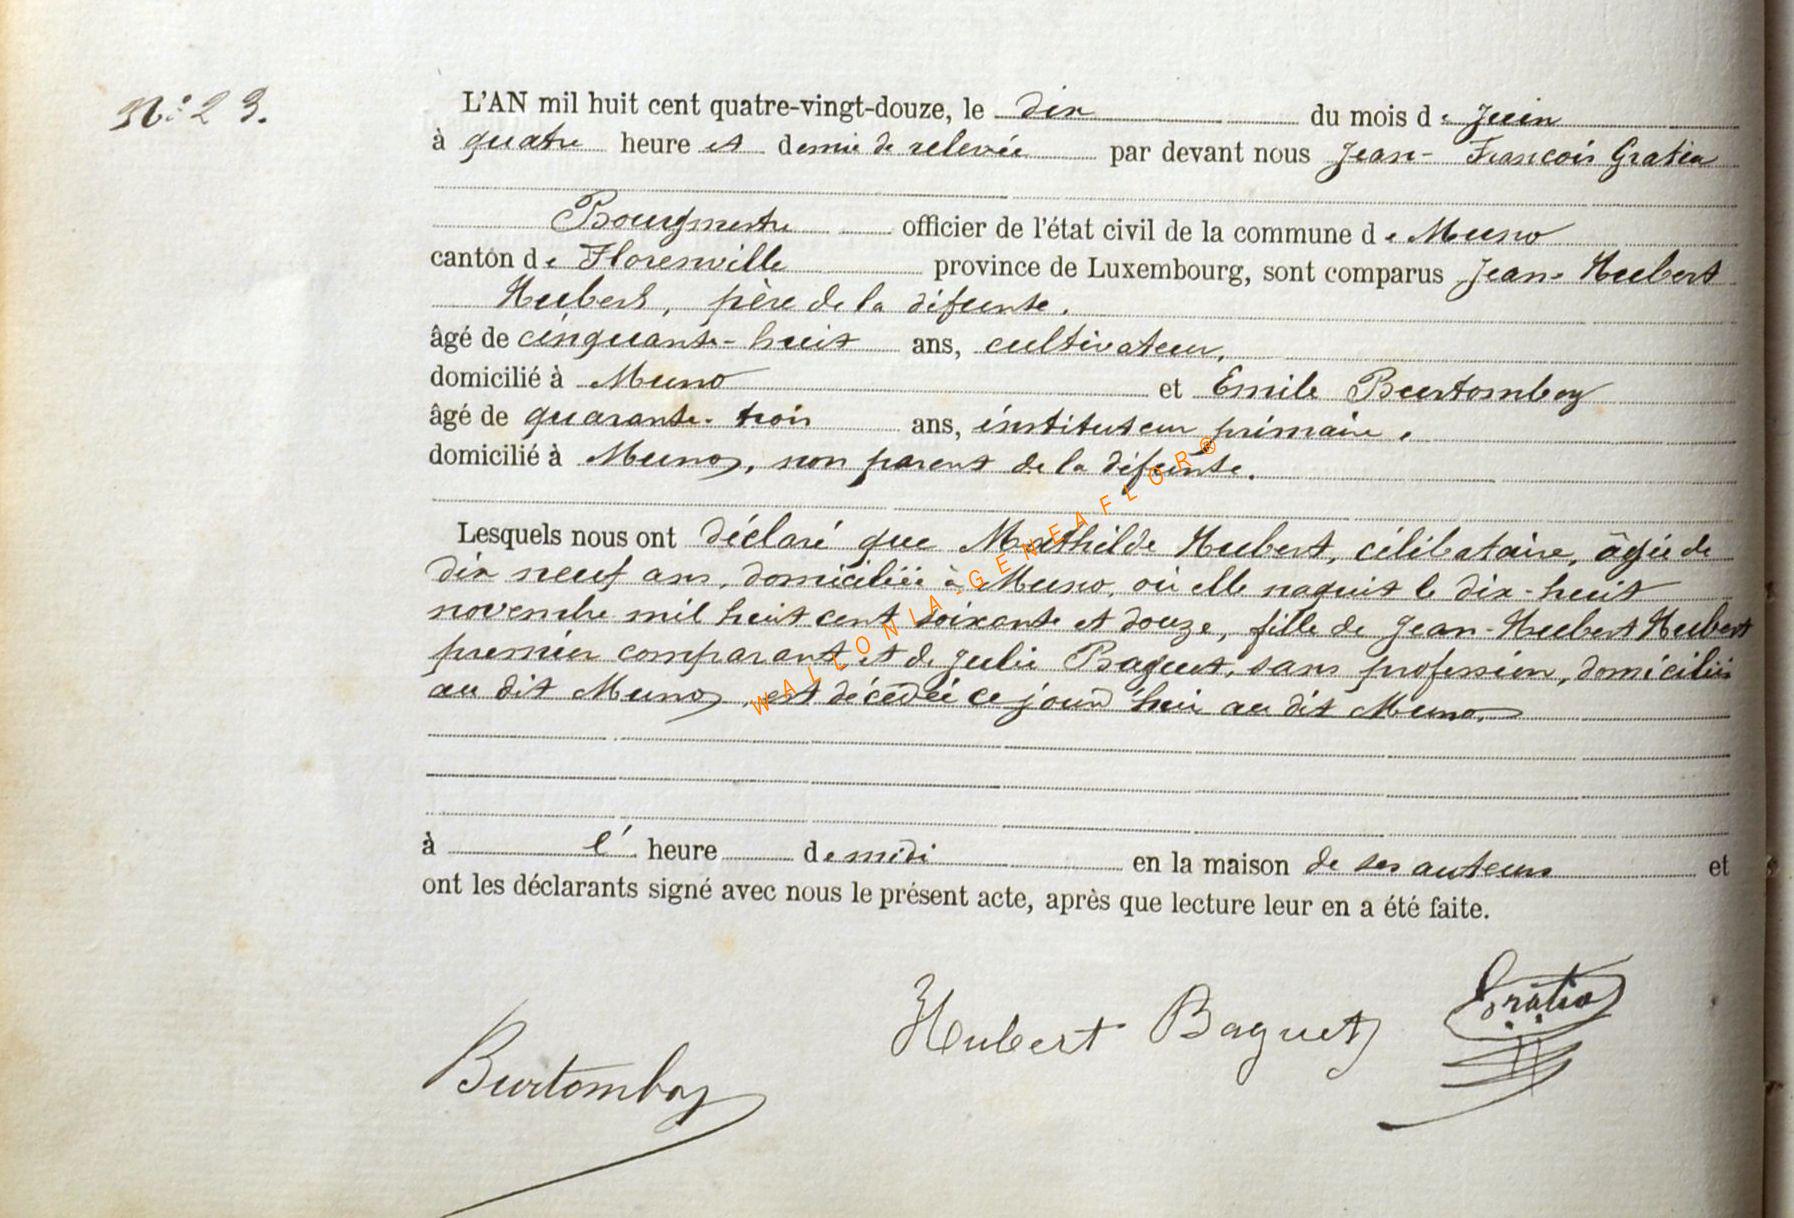 N° 23.
L'AN mil huit cent quatre-vingt-douze, le dix du mois de Juin
à quatre heure et demie de relevée par devant nous Jean-François Gratia
Bourgmestre officier de l'état civil de la commune de Muno
canton de Florenville province de Luxembourg, sont comparus Jean-Hubert
Hubert, père de la défunte.
âgé de cinquante-huit ans, cultivateur,
domicilié à Muno et Emile Burtomboy
âgé de quarante-trois ans, instituteur primaire,
domicilié à Muno, non parent de la défunte.
Lesquels nous ont déclaré que Mathilde Hubert, célibataire, âgée de
dix neuf ans, domiciliée à Muno, où elle naquit le dix-huit
novembre mil huit cent soixante et douze, fille de Jean-Hubert Hubert
premier comparant et de Julie Baquet, sans profession, domiciliés
au dit Muno, est décédée ce jourd'hui au dit Muno,
à l' heure de midi en la maison de ses auteurs et
ont les déclarants signé avec nous le présent acte, après que lecture leur en a été faite.
Burtomboy
Hubert Baquet
Gratia
WALLONIA-GENEAFLOR®